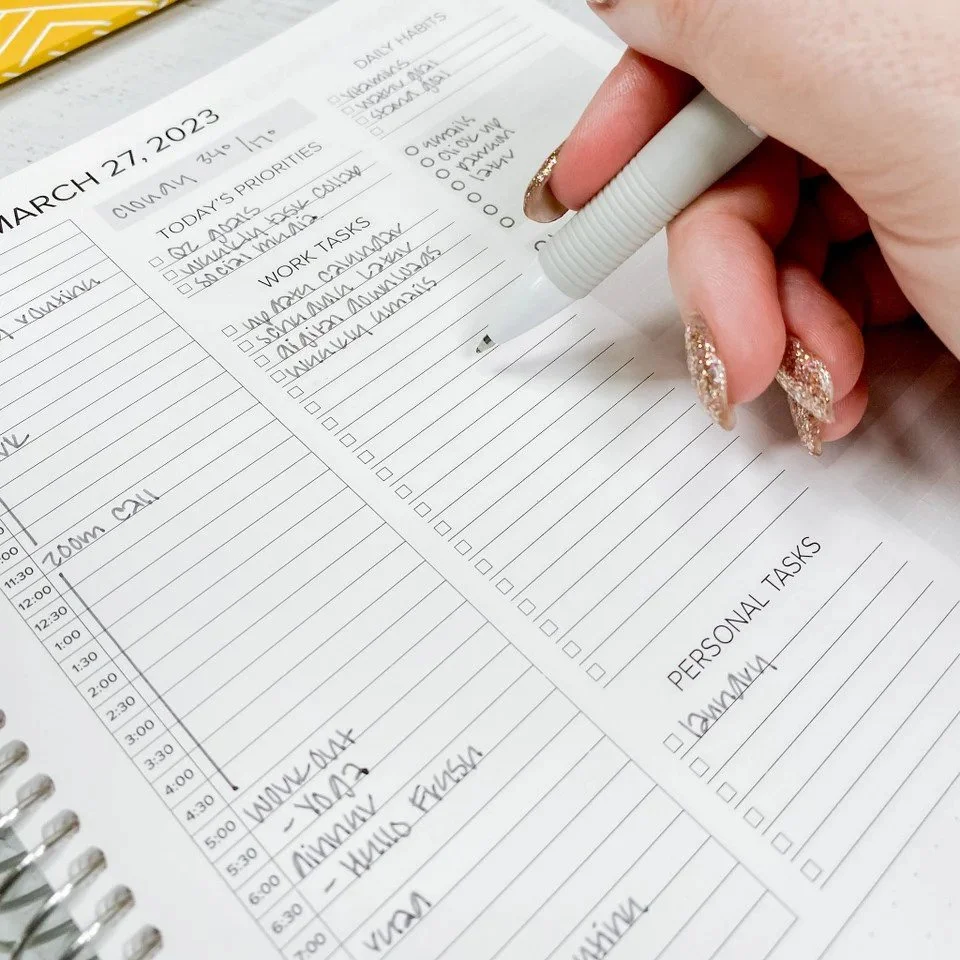 MARCH 27, 2023
cloudy 34° /
TODAY'S PRIORITIES
Q2 goals
weekly task collab
social media
WORK TASKS
schedule later
digital downloads
weekly emails
DAILY HABITS
vitamins
water goal
emails
later
routine
11:30
zoom call
12:00
12:30
1:00
1:30
2:00
2:30
3:00
3:30
4:00
4:30
5:00 work out
5:30 - yoga
6:00 dinner
6:30 - Hello Fresh
7:00
read
PERSONAL TASKS
laundry